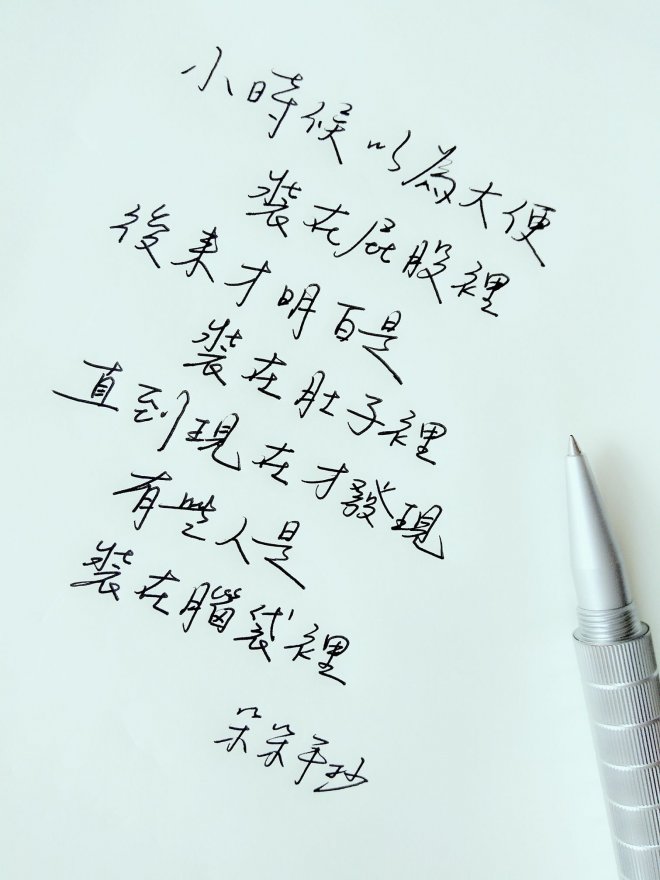 小時候以為大便
裝在屁股裡
後來才明白是
裝在肚子裡
直到現在才發現
有些人是
裝在腦袋裡
朵朵手抄